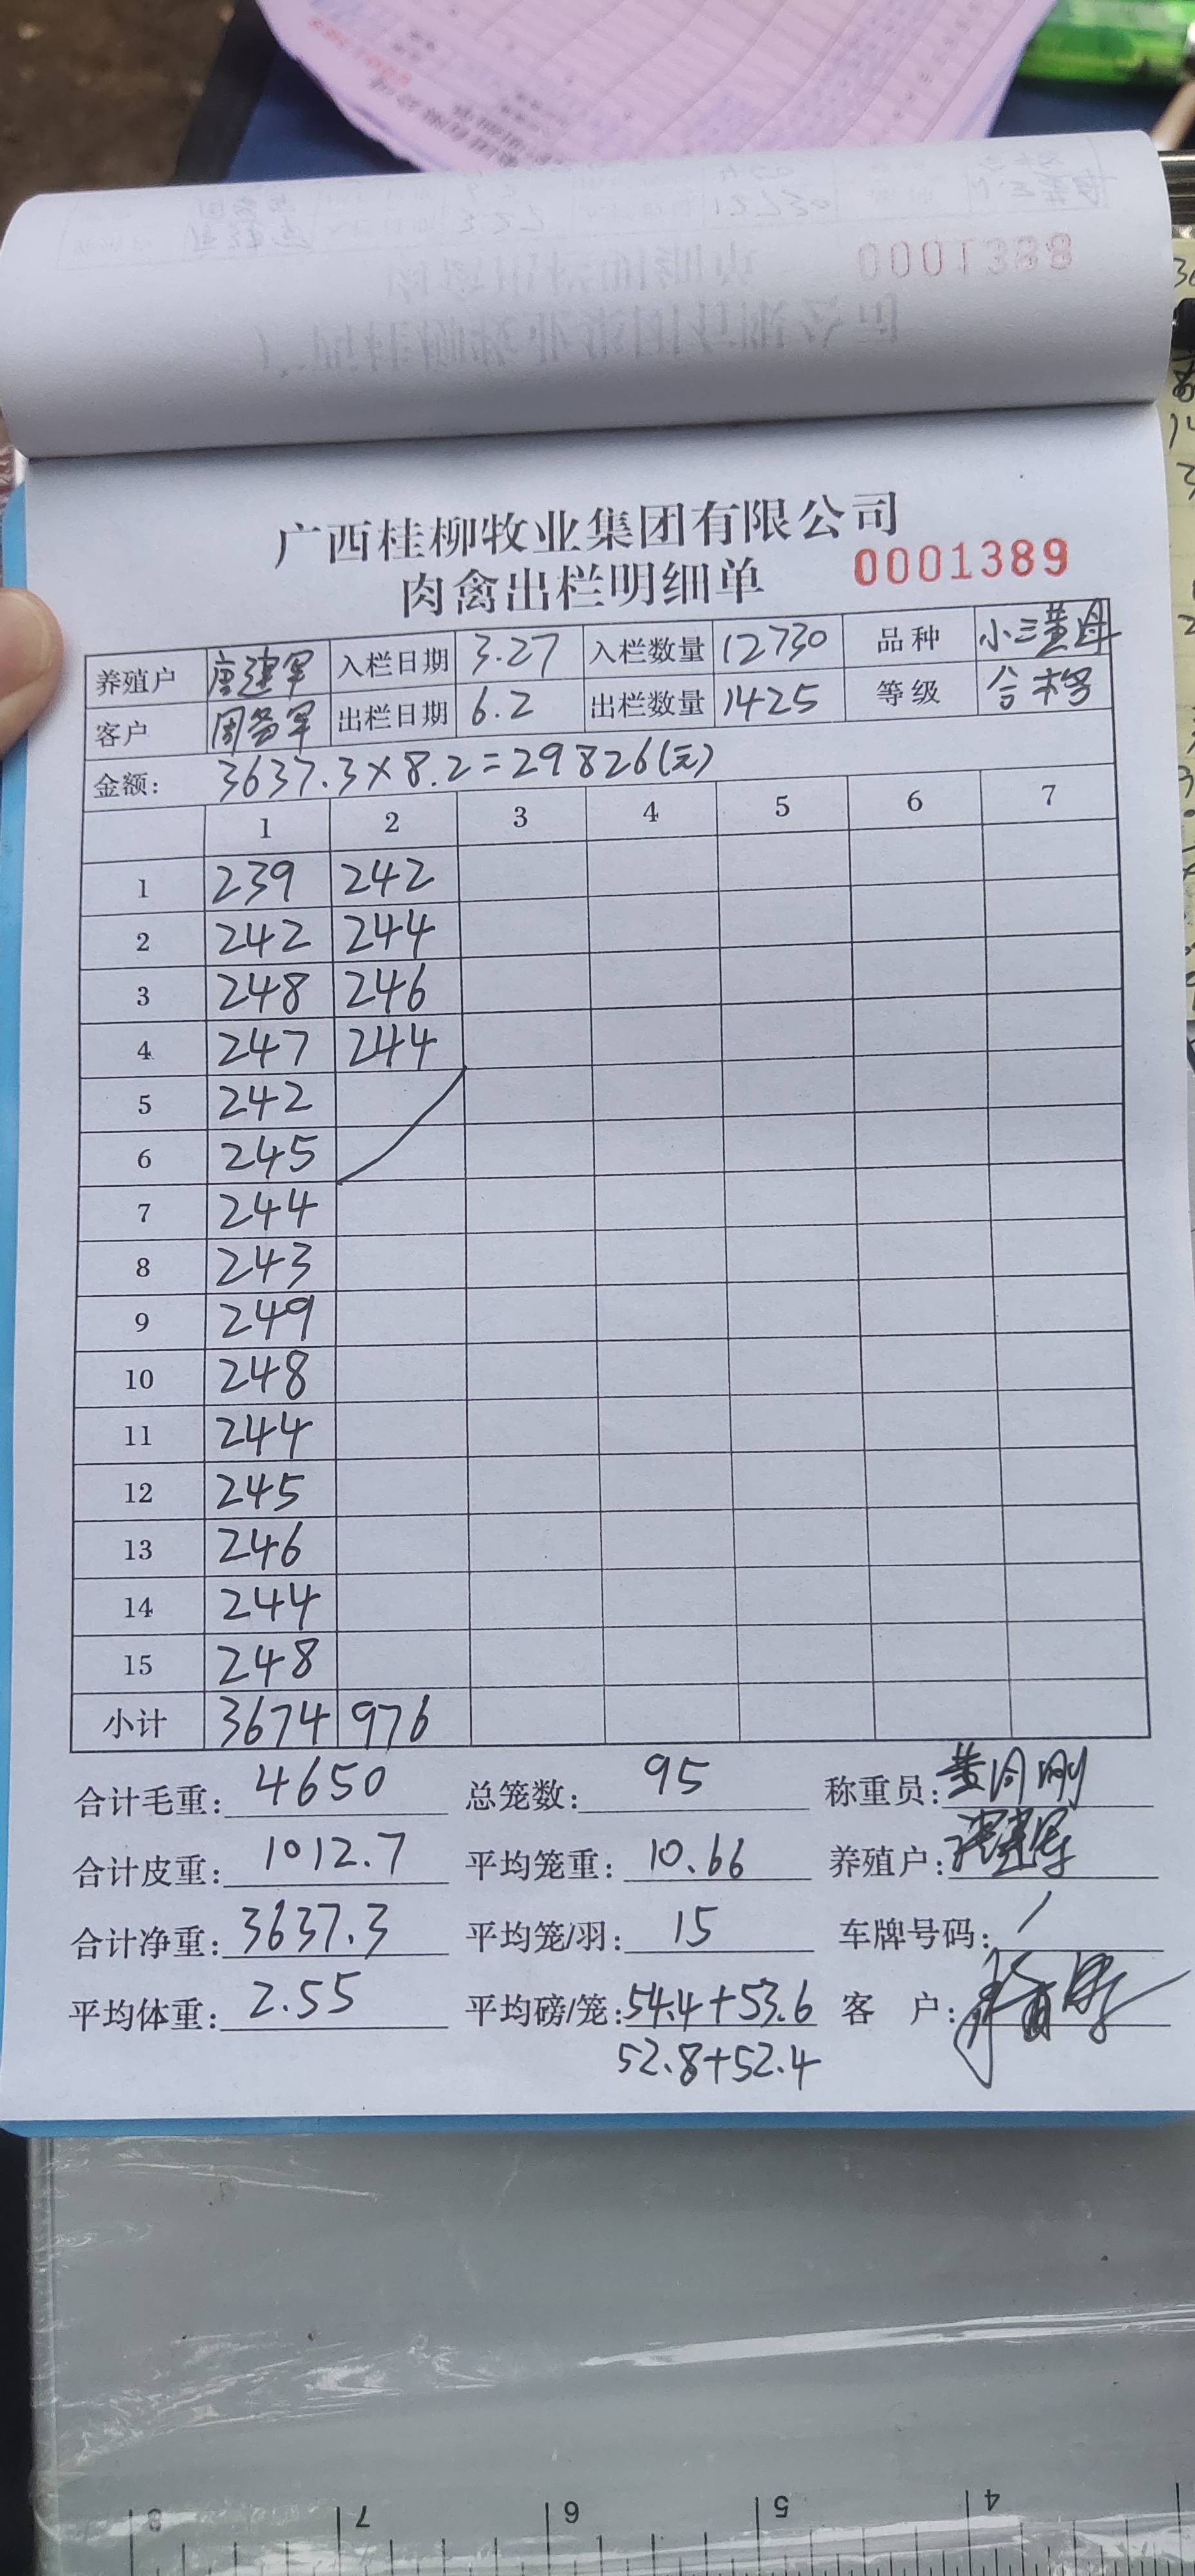 0001388
广西桂柳牧业集团有限公司
肉禽出栏明细单 0001389
养殖户 唐建军 入栏日期 3.27 入栏数量 12730 品种 小三黄母
客户 周备军 出栏日期 6.2 出栏数量 1425 等级 合格
金额: 3637.3×8.2=29826(元)
1 2 3 4 5 6 7
1 239 242
2 242 244
3 248 246
4 247 244
5 242
6 245
7 244
8 243
9 249
10 248
11 244
12 245
13 246
14 244
15 248
小计 3674 976
合计毛重: 4650 总笼数: 95 称重员:
合计皮重: 1012.7 平均笼重: 10.66 养殖户:
合计净重: 3637.3 平均笼/羽: 15 车牌号码: /
平均体重: 2.55 平均磅/笼: 54.4+53.6 客 户:
52.8+52.4
8 7 6 5 4